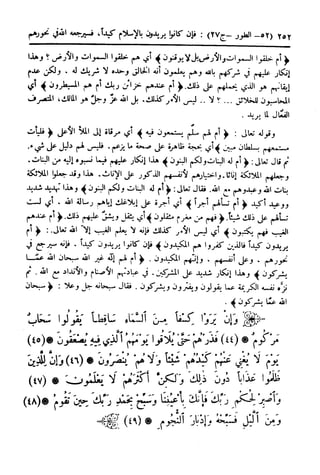 ٢٥٢ (٥٢- الطور - ج٢٧) : فإن كانوا يريدون بالإسلام كيداً، فسيرجعه الله في نحورهم
﴿ أم خلقوا السموات والأرض بل لا يوقنون ﴾ أي هم خلقوا السموات والأرض ؟ وهذا
إنكار عليهم في شركهم بالله وهم يعلمون أنه الخالق وحده لا شريك له . ولكن عدم
إيقانهم هو الذي يحملهم على ذلك. ﴿ أم عندهم خزائن ربك أم هم المسيطرون ﴾ أي
المحاسبون للخلائق ...؟ لا .. ليس الأمر كذلك. بل الله عزّ وجلّ هو المالك، المتصرف
الفعّال لما يريد .
وقوله تعالى : ﴿ أم لهم سلم يستمعون فيه ﴾ أي مرقاة إلى الملأ الأعلى ﴿ فليأت
مستمعهم بسلطان مبين ﴾ أي بحجة ظاهرة على صحة ما يزعم. فليس لهم دليل على شيء.
ثم قال تعالى: ﴿ أم له البنات ولكم البنون ﴾ هذا إنكار عليهم فيما نسبوه إليه من البنات.
وجعلهم الملائكة إناثا. واختيارهم لأنفسهم الذكور على الإناث. هذا وقد جعلوا الملائكة
بنات الله وعبدوهم مع الله. فقال تعالى: ﴿ أم له البنات ولكم البنون ﴾ وهذا تهديد شديد
ووعيد أكيد ﴿ أم تسألهم أجراً ﴾ أي أجرة على إبلاغك إياهم رسالة الله . أي لست
تسألهم على ذلك شيئاً. ﴿ فهم من مغرم مثقلون ﴾ أي يثقل ويشق عليهم ذلك. ﴿ أم عندهم
الغيب فهم يكتبون ﴾ أي ليس الأمر كذلك فإنه لا يعلم الغيب إلا الله تعالى. ﴿ أم
يريدون كيداً فالذين كفروا هم المكيدون ﴾ فإن كانوا يريدون كيداً . فإنه سيرجع في
نحورهم . وعلى أنفسهم . وإنهم المكيدون . ﴿ أم لهم إله غير الله سبحان الله عمّا
يشركون ﴾ وهذا إنكار شديد على المشركين. في عبادتهم الأصنام والأنداد مع الله. ثم
نزّه نفسه الكريمة عما يقولون ويفترون ويشركون. فقال سبحانه جل وعلا : ﴿ سبحان
الله عمّا يشركون ﴾ .
وَإِن يَرَوْا كِسْفًا مِّنَ ٱلسَّمَآءِ سَاقِطًا يَقُولُوا۟ سَحَابٌ
مَّرْكُومٌ * (٤٤) فَذَرْهُمْ حَتَّىٰ يُلَٰقُوا۟ يَوْمَهُمُ ٱلَّذِى فِيهِ يُصْعَقُونَ * (٤٥)
يَوْمَ لَا يُغْنِى عَنْهُمْ كَيْدُهُمْ شَيْـًٔا وَلَا هُمْ يُنصَرُونَ * (٤٦) وَإِنَّ لِلَّذِينَ
ظَلَمُوا۟ عَذَابًا دُونَ ذَٰلِكَ وَلَٰكِنَّ أَكْثَرَهُمْ لَا يَعْلَمُونَ * (٤٧)
وَٱصْبِرْ لِحُكْمِ رَبِّكَ فَإِنَّكَ بِأَعْيُنِنَا وَسَبِّحْ بِحَمْدِ رَبِّكَ حِينَ تَقُومُ * (٤٨)
وَمِنَ ٱلَّيْلِ فَسَبِّحْهُ وَإِدْبَٰرَ ٱلنُّجُومِ * (٤٩)